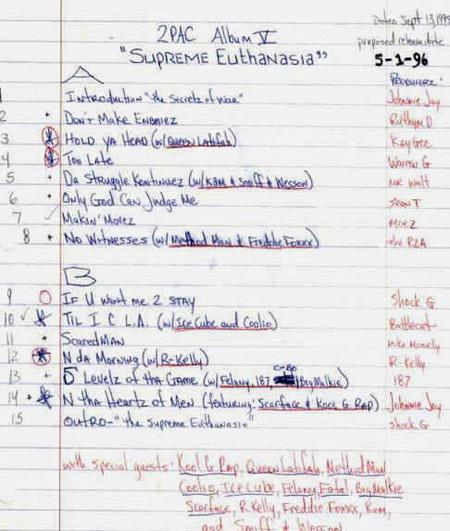 Dated Sept 13, 1995
2PAC Album V
proposed release date
"SUPREME EUTHANASIA"
5-1-96
A
PRODUCERZ:
1 Introduction "the Secretz of War" Johnny Jay
2 Don't Make Enemiez Ruthym D
3 Hold ya Head (w/Queen Latifah) Kay Gee
4 Too Late Warren G
5 Da Struggle Kontinuez (w/Kam & Smiff & Wesson)
6 Only God Can Judge Me Sean T
7 Makin' Movez
8 No Witnesses (w/Method Man & Freddie Foxxx) RZA
B
9 If U want me 2 STAY Shock G
10 TIL I C L.A. (w/Ice Cube and Coolio) Battlecat
11 ScaredMAN Mike Mosely
12 N da Morning (w/R-Kelly) R-Kelly
13 5 Levelz of tha Game (w/Felony, 187, C-Bo Big Malkie) 187
14 N tha Heartz of Men (featuring: Scarface & Kool G Rap) Johnny Jay
15 OUTRO-"the Supreme Euthanasia" Shock G
with special guests: Kool G Rap, Queen Latifah, Method Man
Coolio, Ice Cube, Felony, Fatal, Big Malkie
Scarface, R Kelly, Freddie Foxxx, Kam,
and Smiff & Wesson